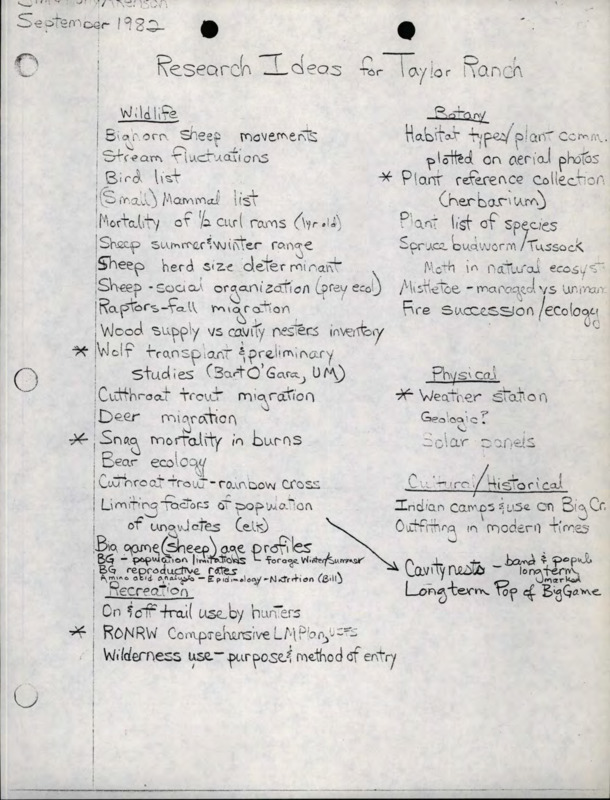 Akenson
September 1982
Research Ideas for Taylor Ranch
Wildlife
Bighorn sheep movements
Stream fluctuations
Bird list
(Small) Mammal list
Mortality of 1/2 curl rams (1yr old)
Sheep summer & winter range
Sheep herd size determinant
Sheep - social organization (prey ecol)
Raptors - fall migration
Wood supply vs cavity nesters inventory
* Wolf transplant & preliminary
studies (Bart O'Gara, UM)
Cutthroat trout migration
Deer migration
* Snag mortality in burns
Bear ecology
Cuthroat trout - rainbow cross
Limiting factors of population
of ungulates (elk)
Big game (sheep) age profiles
BG - population limitations - forage Winter/Summer
BG reproductive rates
Amino acid analysis - Epidimology - Nutrition (Bill)
Recreation
On & off trail use by hunters
* RONRW Comprehensive LM Plan, uses
Wilderness use - purpose & method of entry
Botany
Habitat types/plant comm.
plotted on aerial photos
* Plant reference collection
(herbarium)
Plant list of species
Spruce budworm/Tussock
Moth in natural ecosyst
Mistletoe - managed vs unman
Fire succession/ecology
Physical
* Weather station
Geologic?
Solar panels
Cultural/Historical
Indian camps & use on Big Cr.
Outfitting in modern times
Cavity nests - band & popul
long term
marked
Long term Pop of Big Game